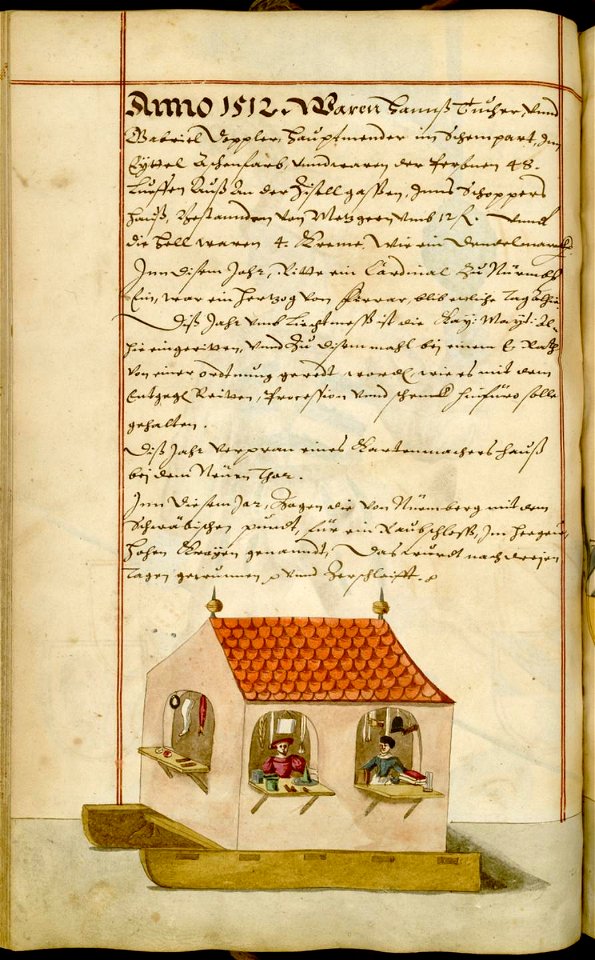 Anno 1512. Waren Hannß Tucher, vnnd
Gabriel Deppler, Hauptmender im Schempart, Im
Eyttel Aschenfarb, vnnd waren der ferbnen 48.
Luffen Auß In der Zisell gassen, Inns Schoppers
Hauß, Bestannden von Metzgern vmb 12 fl. Vnnd
die Hell waren 4. Kreme, Wie ein Dendelmarck.
Inn disem Jahr, Ritte ein Cardinal Zu Nürmb:
Ein, war ein Hertzog von Ferrar, blib etliche Tag Alhie
Diß Jahr vmb Liechtmeß ist die Kay: Mayt: Al-
hie eingeritten, vnnd Zu disem mahl bei einem E. Rath
von einer ordtnung geredt worden, wie es mit dem
Entgegen Reitten, Procession vnnd schenck hinfüro solle
gehalten.
Diß Jahr verpran eines Kartenmachers Hauß
bei dem Neuen Thor.
Inn diesem Jar, Zogen die von Nürmberg mit dem
Schwäbischen pundt, für ein Raubschloß, Im Hegeu,
Hohen Kräyen genanndt, Das wurdt nach dreyen
Tagen gewunnen vnnd Zerschleifft.